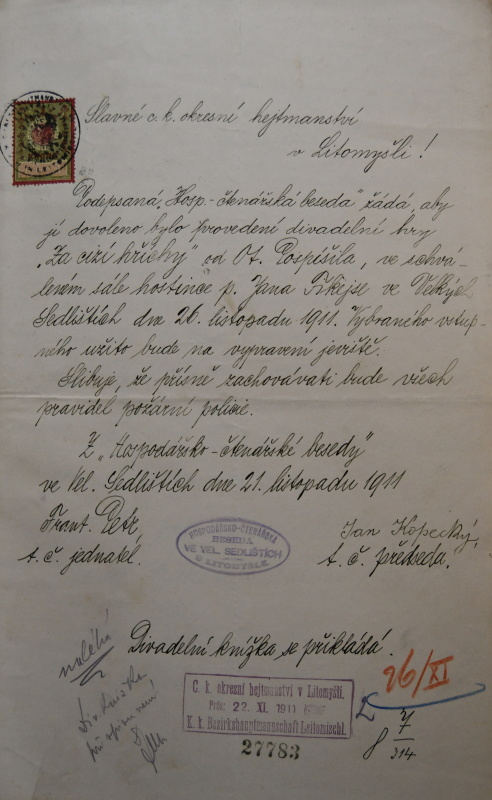 Slavné c. k. okresní hejtmanství
v Litomyšli!
Podepsaná „Hosp.-čtenářská beseda" žádá, aby
jí dovoleno bylo provedení divadelní hry
„Za cizí hříchy" od Ot. Pospíšila, ve schvá-
leném sále hostince p. Jana ve Velkých
Sedlištích dne 26. listopadu 1911. Vybraného vstup-
ného užito bude na vypravení jeviště.
Slibuje, že přísně zachovávati bude všech
pravidel požární policie.
Z „Hospodářsko-čtenářské besedy"
ve Vel. Sedlištích dne 21. listopadu 1911
Frant. Petr,
t. č. jednatel.
HOSPODÁŘSKO-ČTENÁŘSKÁ
BESEDA
VE VEL. SEDLIŠTÍCH
U LITOMYŠLE
Jan Kopecký,
t. č. předseda.
Divadelní knížka se přikládá.
naléhá
26/XI
C. k. okresní hejtmanství v Litomyšli.
22. XI. 1911
K. k. Bezirkshauptmannschaft Leitomischl.
27783
8 7
314